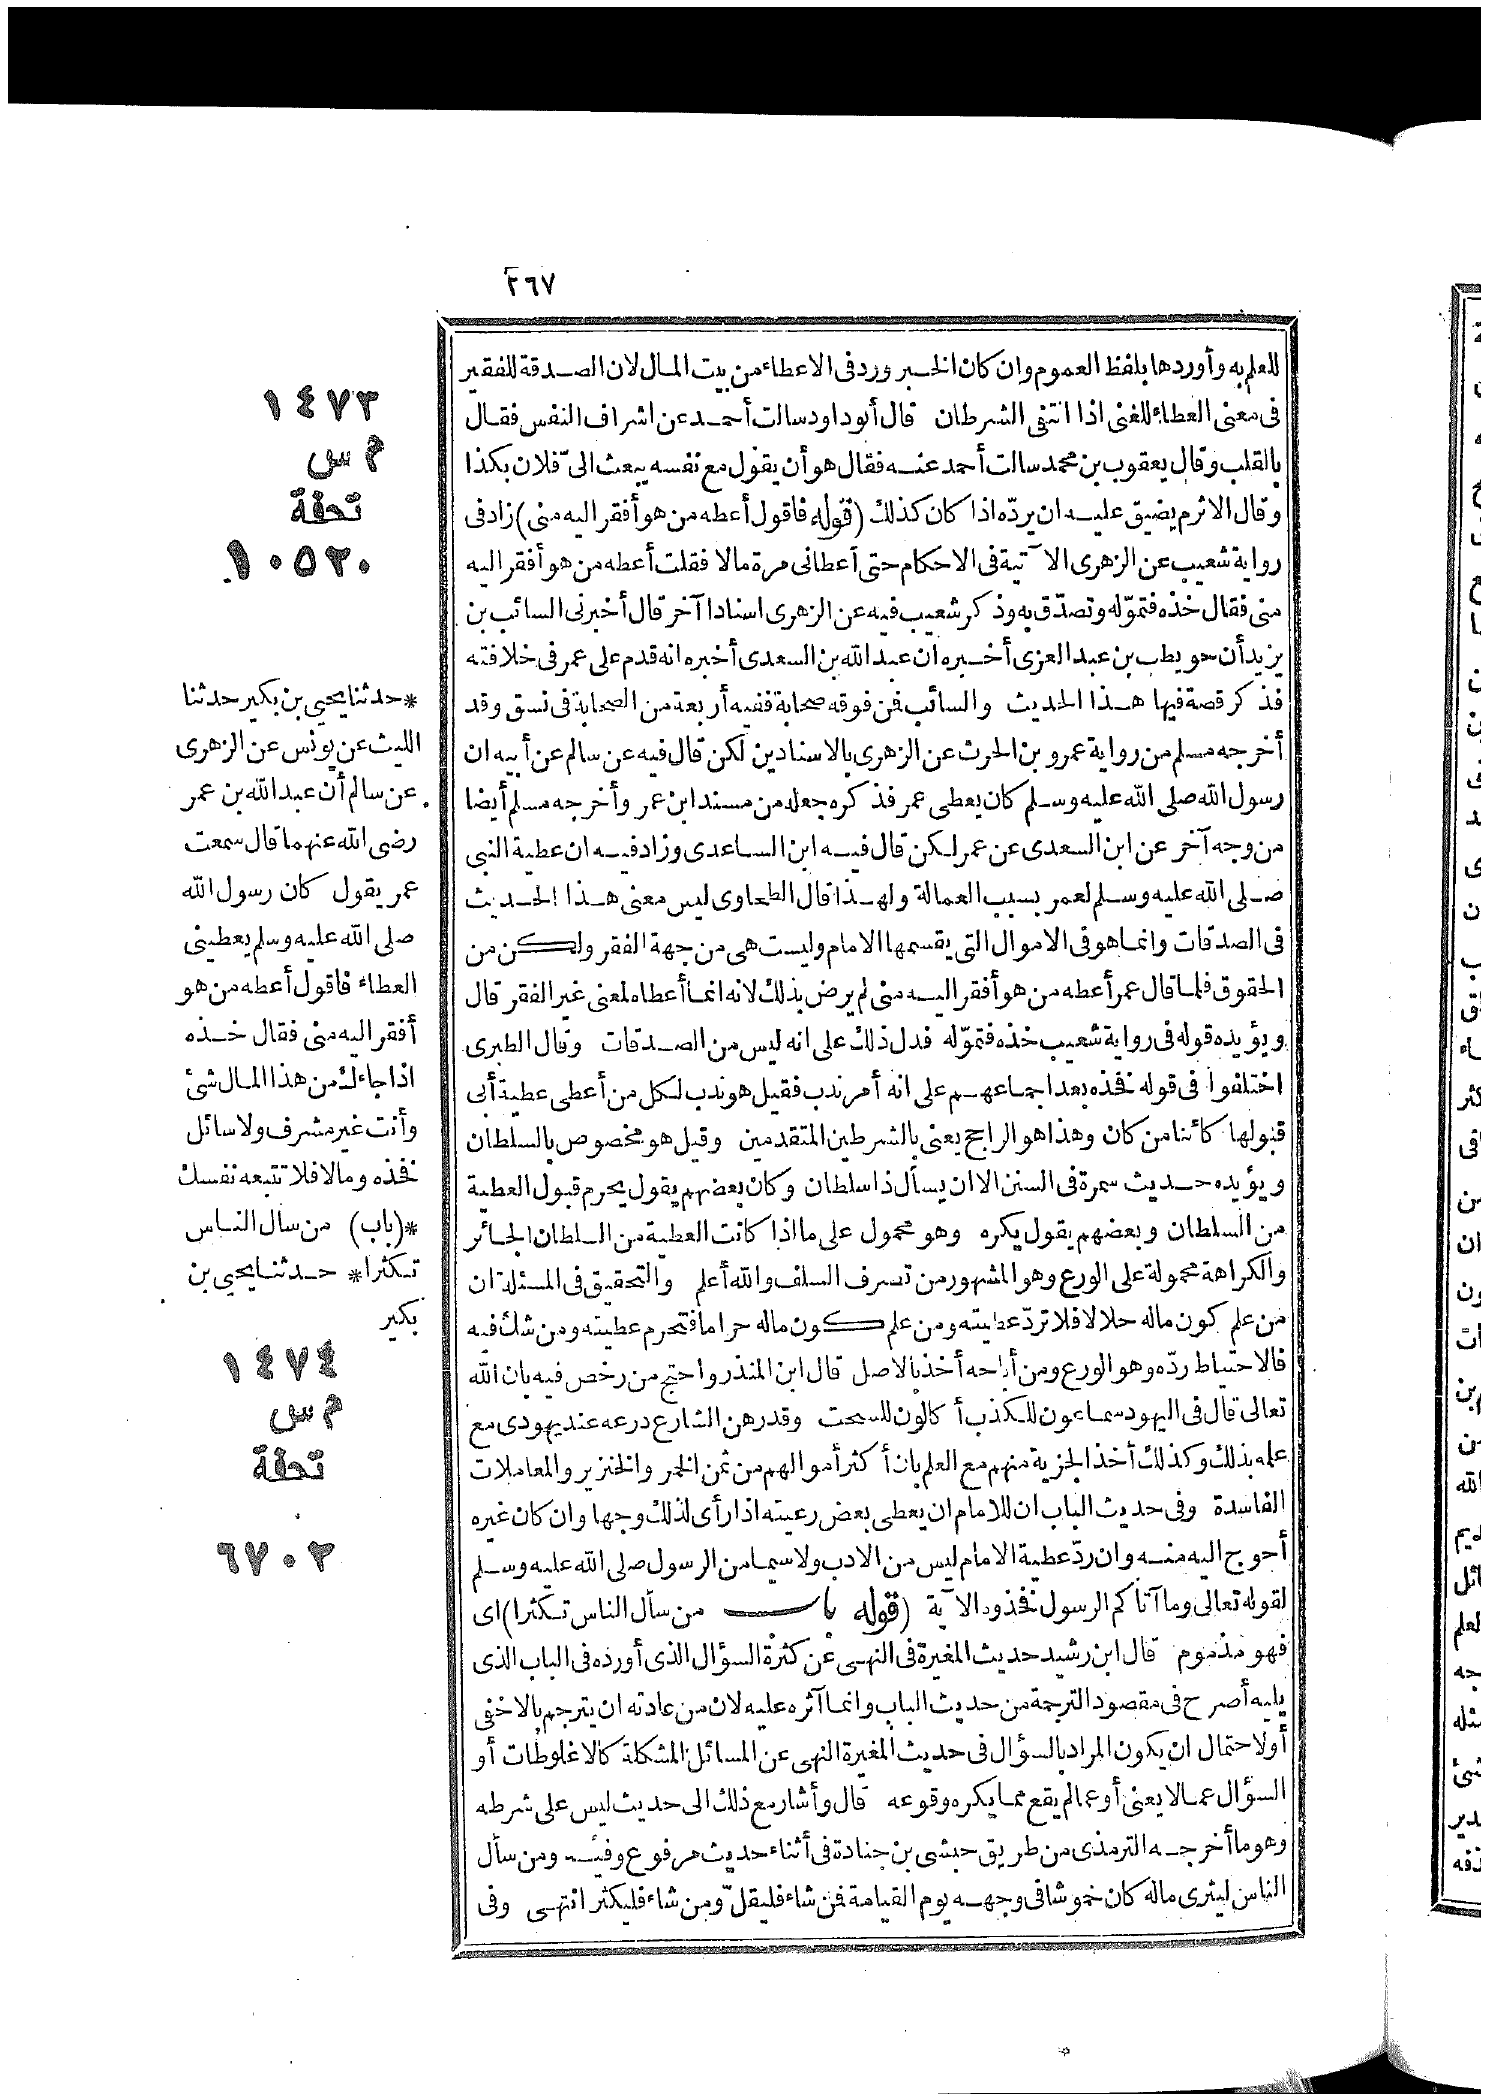 ٢٦٧
للعلم به وأوردها بلفظ العموم وان كان الخبر ورد فى الاعطاء من بيت المال لان الصدقة للفقير
فى معنى العطاء للغنى اذا انتفى الشرطان قال أبو داود سالت أحمد عن اشراف النفس فقال
بالقلب وقال يعقوب بن محمد سالت أحمد عنه فقال هو أن يقول مع نفسه يبعث الىّ فلان بكذا
وقال الاثرم يضيق عليه ان يردّه اذا كان كذلك (قوله فاقول أعطه من هو أفقر اليه منى) زاد فى
رواية شعيب عن الزهرى الآتية فى الاحكام حتى أعطانى مرة مالا فقلت أعطه من هو أفقر اليه
منى فقال خذه فتموّله وتصدّق به وذكر شعيب فيه عن الزهرى اسنادا آخر قال أخبرنى السائب بن
يزيد أن حويطب بن عبد العزى أخبره ان عبد الله بن السعدى أخبره انه قدم على عمر فى خلافته
فذكر قصة فيها هذا الحديث والسائب فمن فوقه صحابة ففيه أربعة من الصحابة فى نسق وقد
أخرجه مسلم من رواية عمرو بن الحرث عن الزهرى بالاسنادين لكن قال فيه عن سالم عن أبيه ان
رسول الله صلى الله عليه وسلم كان يعطى عمر فذكره جعله من مسند ابن عمر وأخرجه مسلم أيضا
من وجه آخر عن ابن السعدى عن عمر لكن قال فيه ابن الساعدى وزاد فيه ان عطية النبى
صلى الله عليه وسلم لعمر بسبب العمالة ولهذا قال الطحاوى ليس معنى هذا الحديث
فى الصدقات وانما هو فى الاموال التى يقسمها الامام وليست هى من جهة الفقر ولكن من
الحقوق فلما قال عمر أعطه من هو أفقر اليه منى لم يرض بذلك لانه انما أعطاه لمعنى غير الفقر قال
ويؤيده قوله فى رواية شعيب خذه فتموّله فدل ذلك على انه ليس من الصدقات وقال الطبرى
اختلفوا فى قوله فخذه بعد اجماعهم على انه أمر ندب فقيل هو ندب لكل من أعطى عطية أبى
قبولها كائنا من كان وهذا هو الراجح يعنى بالشرطين المتقدمين وقيل هو مخصوص بالسلطان
ويؤيده حديث سمرة فى السنن الا ان يسأل ذا سلطان وكان بعضهم يقول يحرم قبول العطية
من السلطان وبعضهم يقول يكره وهو محمول على ما اذا كانت العطية من السلطان الجائر
والكراهة محمولة على الورع وهو المشهور من تصرف السلف والله أعلم والتحقيق فى المسئلة ان
من علم كون ماله حلالا فلا تردّ عطيته ومن علم كون ماله حراما فتحرم عطيته ومن شك فيه
فالاحتياط ردّه وهو الورع ومن أباحه أخذ بالاصل قال ابن المنذر واحتج من رخص فيه بان الله
تعالى قال فى اليهود سماعون للكذب أكالون للسحت وقد رهن الشارع درعه عند يهودى مع
علمه بذلك وكذلك أخذ الجزية منهم مع العلم بان أكثر أموالهم من ثمن الخمر والخنزير والمعاملات
الفاسدة وفى حديث الباب ان للامام ان يعطى بعض رعيته اذا رأى لذلك وجها وان كان غيره
أحوج اليه منه وان ردّ عطية الامام ليس من الادب ولا سيما من الرسول صلى الله عليه وسلم
لقوله تعالى وما آتاكم الرسول فخذوه الآية (قوله باب من سأل الناس تكثرا) اى
فهو مذموم قال ابن رشيد حديث المغيرة فى النهى عن كثرة السؤال الذى أورده فى الباب الذى
يليه أصرح فى مقصود الترجمة من حديث الباب وانما آثره عليه لان من عادته ان يترجم بالاخفى
أو لاحتمال ان يكون المراد بالسؤال فى حديث المغيرة النهى عن المسائل المشكلة كالاغلوطات أو
السؤال عما لا يعنى أو عما لم يقع مما يكره وقوعه قال وأشار مع ذلك الى حديث ليس على شرطه
وهو ما أخرجه الترمذى من طريق حبشى بن جنادة فى أثناء حديث مرفوع وفيه ومن سأل
الناس ليثرى ماله كان خموشا فى وجهه يوم القيامة فمن شاء فليقلّ ومن شاء فليكثر انتهى وفى
١٤٧٣
م س
تحفة
١٠٥٢٠
*حدثنا يحيى بن بكير حدثنا
الليث عن يونس عن الزهرى
عن سالم أن عبد الله بن عمر
رضى الله عنهما قال سمعت
عمر يقول كان رسول الله
صلى الله عليه وسلم يعطينى
العطاء فاقول أعطه من هو
أفقر اليه منى فقال خذه
اذا جاءك من هذا المال شئ
وأنت غير مشرف ولا سائل
فخذه وما لا فلا تتبعه نفسك
*(باب) من سأل الناس
تكثرا* حدثنا يحيى بن
بكير
١٤٧٤
م س
تحفة
٦٧٠٢